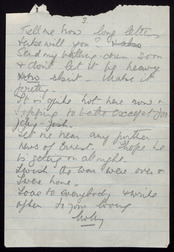 3
Tell me how long letters
take will you?
Send my bathing gown soon
& don't let it be heavy
short. Make it
pretty.
It is quite hot here now &
nothing to bathe except for
Let me hear any further
news of Ernest. I hope he
is getting on alright.
I wish the war were over &
I was home.
Love to everybody & write
often to your loving